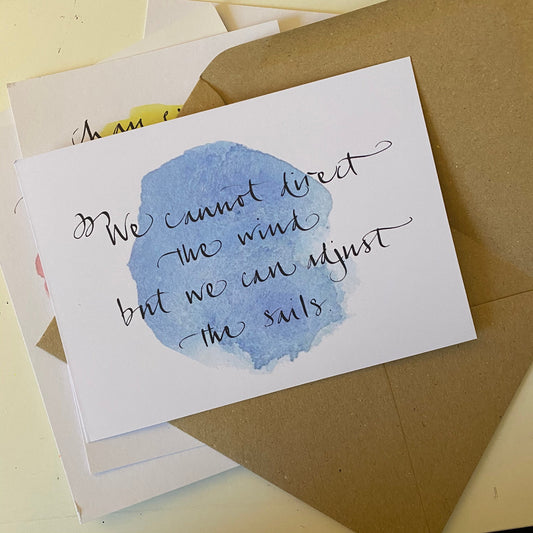 We cannot direct
the wind
but we can adjust
the sails.